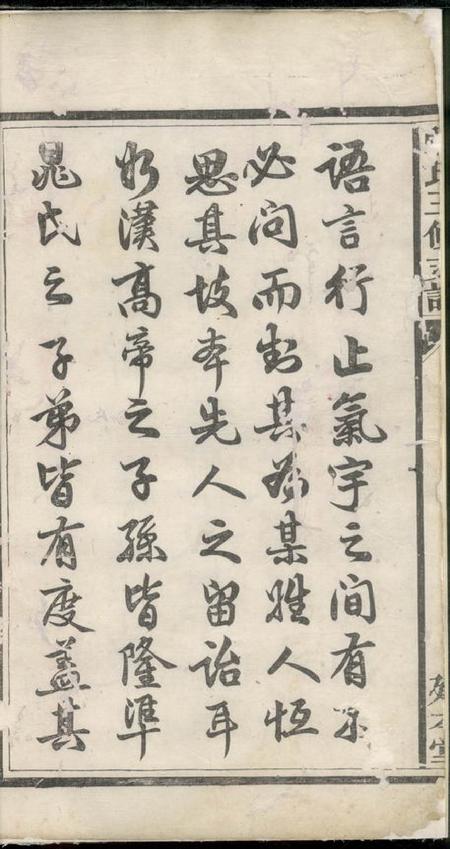 語言行止氣宇之間有不
必問而對其為某姓人恆
思其故本先人之留詒耳
如漢高帝之子孫皆隆準
晁氏之子弟皆有度蓋其
氏三修